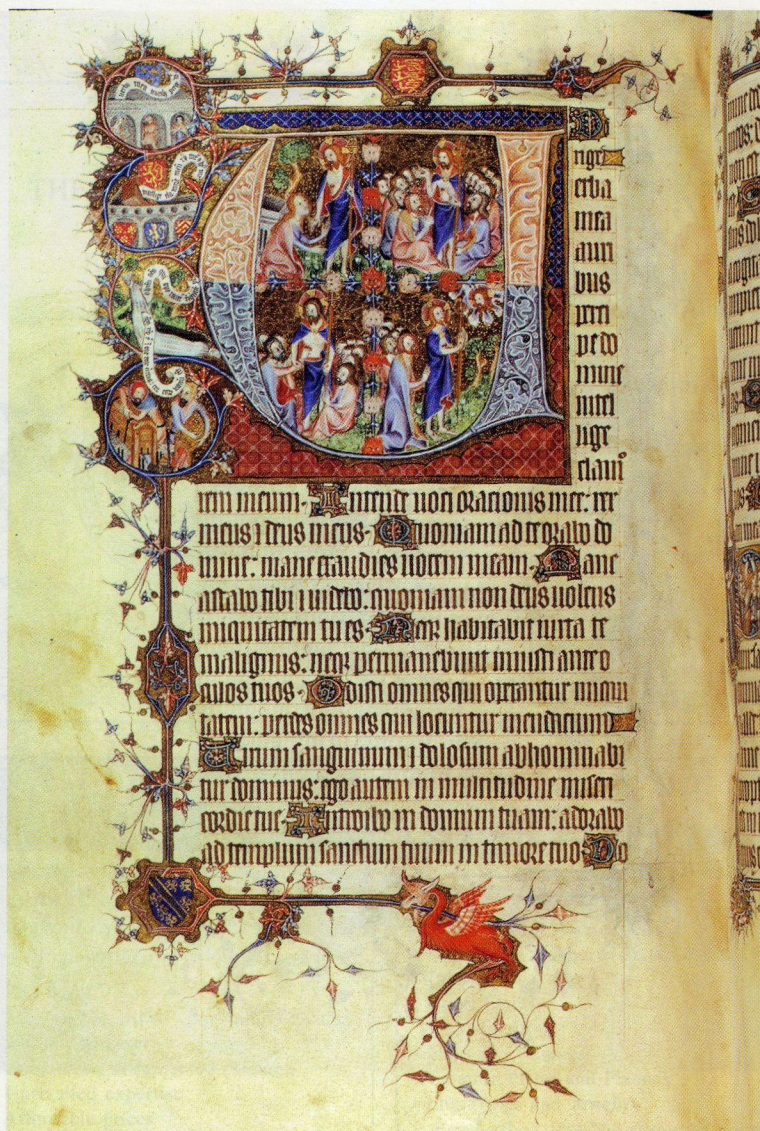 D
irige
erba
mea
auri
bus
perci
pe do
mine
intel
lige
clamo
rem meum. Intende uoci orationis mee: rex
meus ⁊ deus meus. Quoniam ad te orabo do
mine: mane exaudies uocem meam. Mane
astabo tibi ⁊ uidebo: quoniam non deus uolens
iniquitatem tu es. Neqꝫ habitabit iuxta te
malignus: neqꝫ permanebunt iniusti ante o
culos tuos. Odisti omnes qui operantur iniqui
tatem: perdes omnes qui locuntur mendacium
Uirum sanguinum ⁊ dolosum abhominabi
tur dominus: ego autem in multitudine miseri
cordie tue. Introibo in domum tuam: adorabo
ad templum sanctum tuum in timore tuo. Do